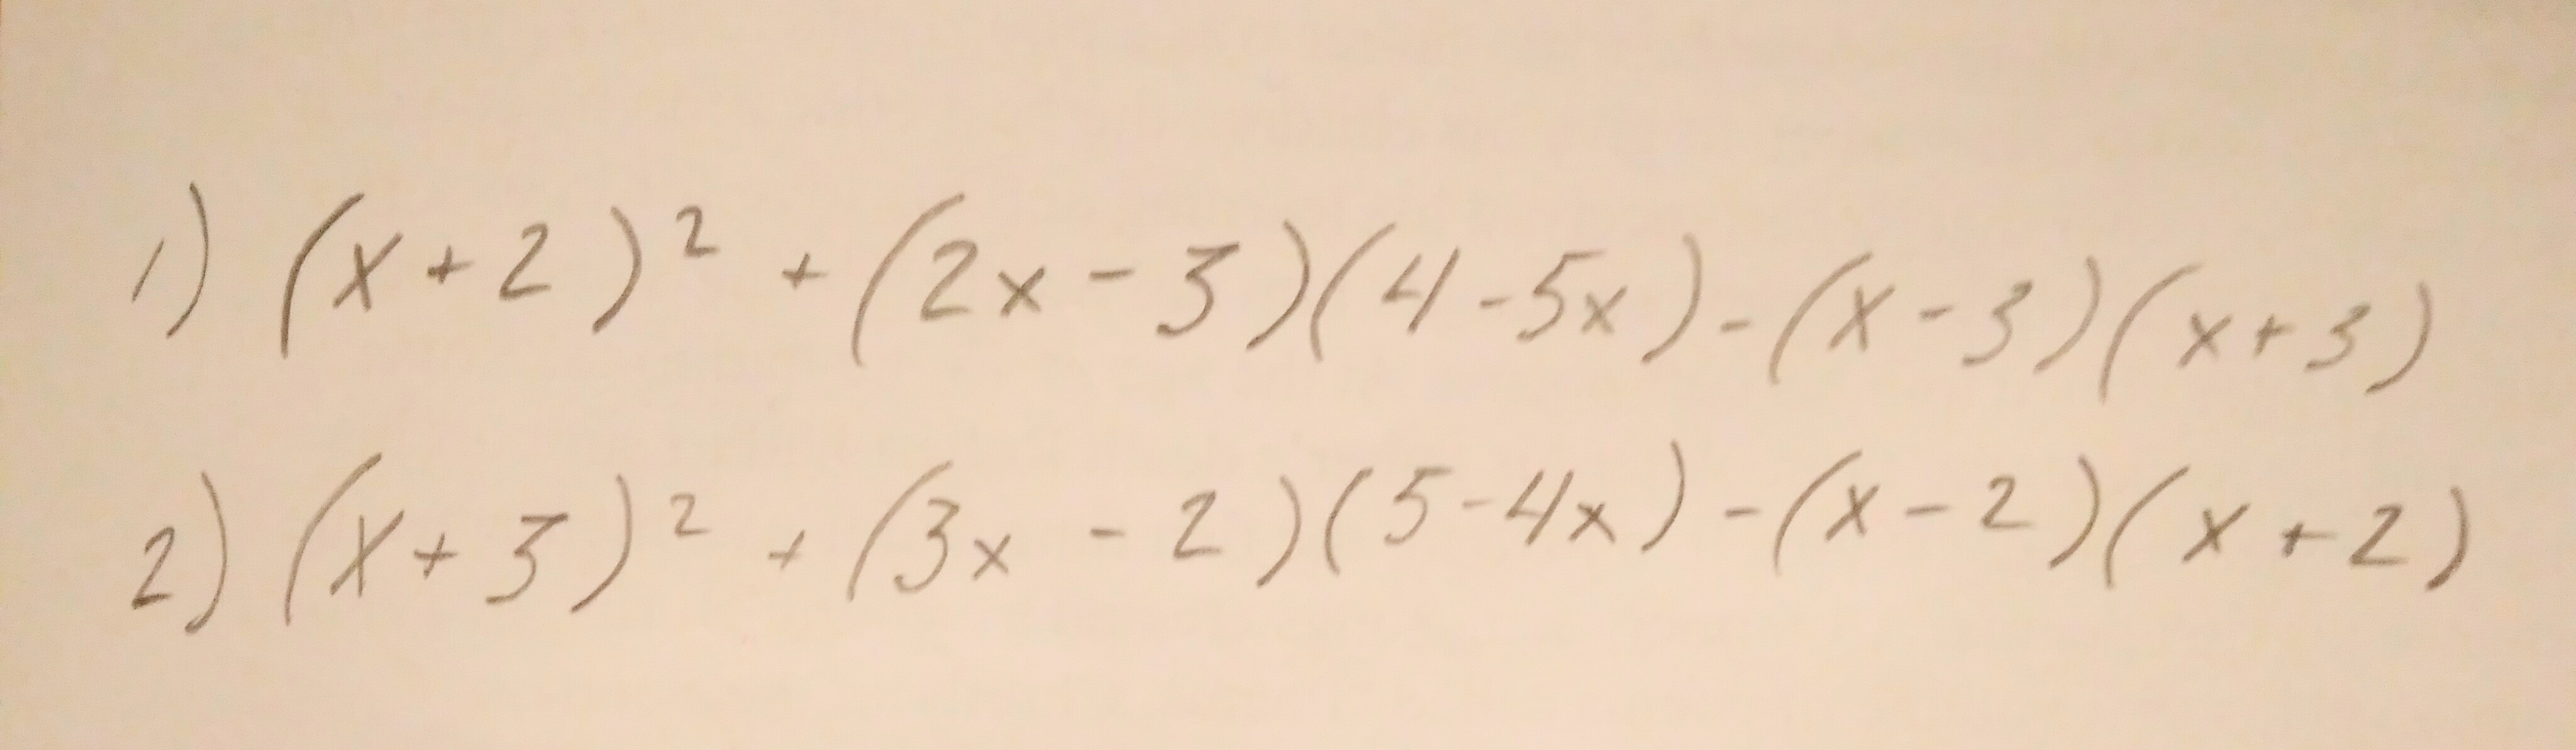 1) (x+2)² + (2x-3)(4-5x)-(x-3)(x+3)
2) (x+3)² + (3x-2)(5-4x)-(x-2)(x+2)